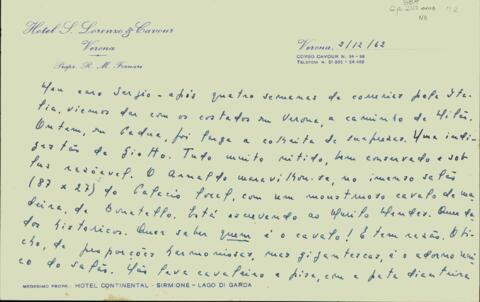 Hotel S. Lorenzo & Cavour
Verona
Propr. R. M. Fornari
Verona, 2/12/62
CORSO CAVOUR N. 34 - 36
TELEFONI N.
Meu caro Sergio - após quatro semanas de correrias pela Itá-
lia, viemos dar com os costados em Verona, a caminho de Milão.
Ontem, em Padua, foi farga a colheita de surpresas. Uma indi-
gestão de Giotto. Tudo muito nitido, bem conservado e sob
luz razoável. O Arnaldo maravilhou-se, no imenso salão
(87 x 27) do Palacio local, com um monstruoso cavalo de ma-
deira, de Donatello. Está escrevendo ao Murilo Mendes. Quer da-
dos historicos. Quer saber quem é o cavalo! E tem razão. O bi-
cho, de proporções harmoniosas, mas gigantescas, é o adorno úni-
co do salão. Não leva cavaleiro e pisa, com a pata dianteira
MEDESIMO PROPR.: HOTEL CONTINENTAL - SIRMIONE - LAGO DI GARDA